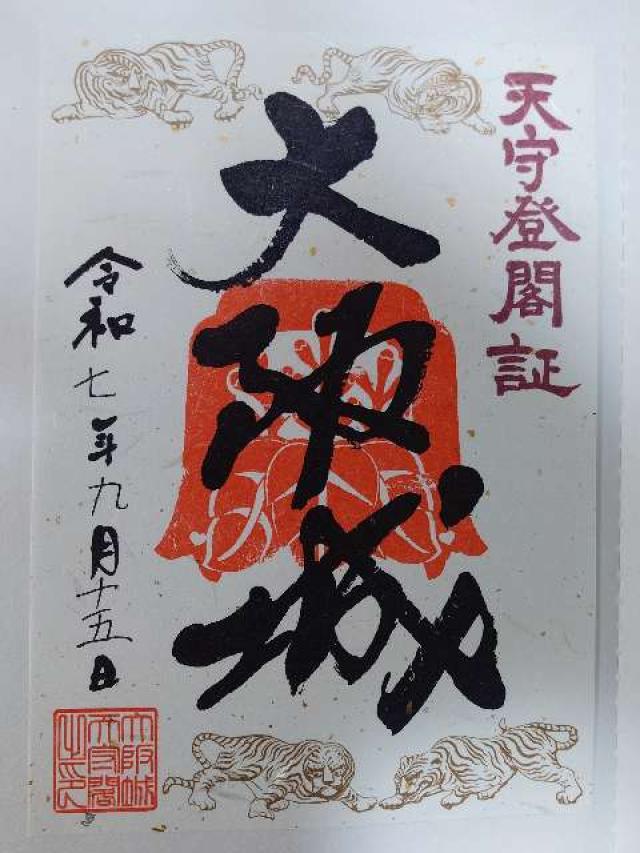 天守登閣証
大阪城
令和七年九月十五日
大阪城
天守閣
之印